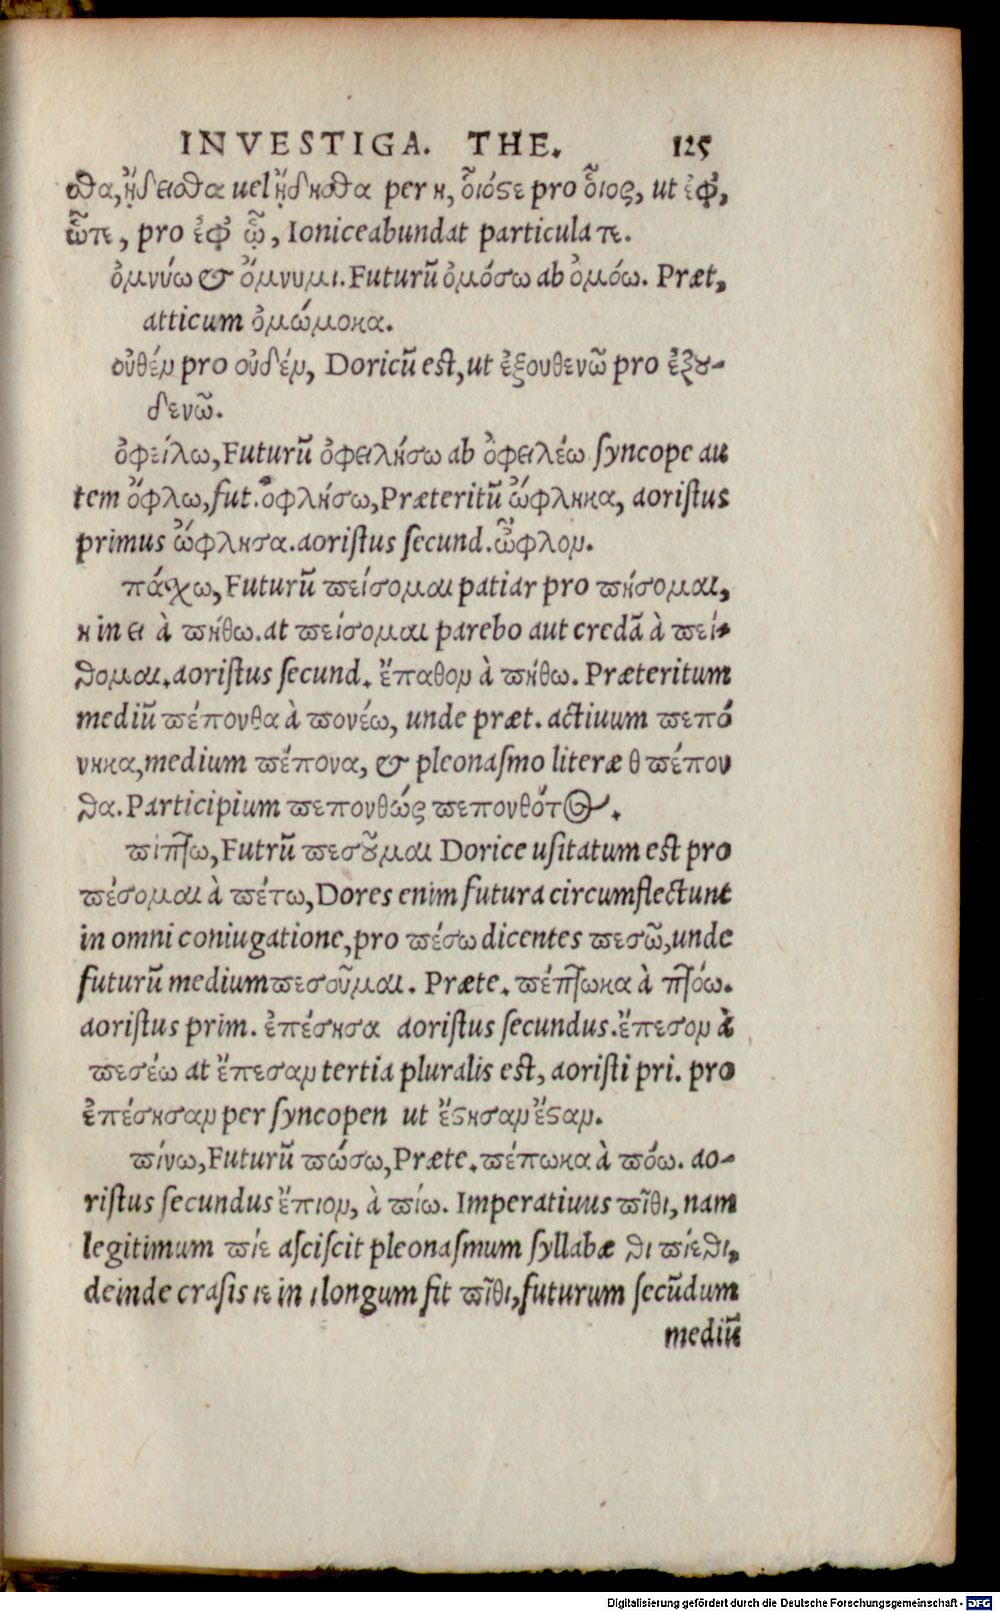 INVESTIGA. THE. 125
σθα, ᾔδεισθα uel ᾔδησθα per η, οἷός τε pro οἷος, ut ἐφ᾽,
ᾧτε, pro ἐφ᾽ ᾧ, Ionice abundat particula τε.
ὀμνύω & ὄμνυμι. Futurū ὀμόσω ab ὀμόω. Præt,
atticum ὀμώμοκα.
οὐθέν pro οὐδέν, Doricū est, ut ἐξουθενῶ pro ἐξȣ-
δενῶ.
ὀφείλω, Futurū ὀφειλήσω ab ὀφειλέω syncope au
tem ὄφλω, fut. ὀφλήσω, Præteritū ὤφληκα, aoristus
primus ὤφλησα. aoristus secund. ὦφλον.
πάσχω, Futurū πείσομαι patiar pro πήσομαι,
η in ει à πήθω. at πείσομαι parebo aut credā à πεί-
θομαι. aoristus secund. ἔπαθον à πήθω. Præteritum
mediū πέπονθα à πονέω, unde præt. actiuum πεπό
νηκα, medium πέπονα, & pleonasmo literæ θ πέπον
θα. Participium πεπονθώς πεπονθότος.
πίπτω, Futrū πεσοῦμαι Dorice usitatum est pro
πέσομαι à πέτω, Dores enim futura circumflectunt
in omni coniugatione, pro πέσω dicentes πεσῶ, unde
futurū medium πεσοῦμαι. Præte. πέπτωκα à πτόω.
aoristus prim. ἐπέσησα aoristus secundus. ἔπεσον à
πεσέω at ἔπεσαν tertia pluralis est, aoristi pri. pro
ἐπέσησαν per syncopen ut ἔστησαν ἔσταν.
πίνω, Futurū πώσω, Præte. πέπωκα à πόω. ao-
ristus secundus ἔπιον, à πίω. Imperatiuus πῖθι, nam
legitimum πίε asciscit pleonasmum syllabæ θι πίεθι,
deinde crasis ιε in ι longum fit πῖθι, futurum secūdum
mediū
Digitalisierung gefördert durch die Deutsche Forschungsgemeinschaft - DFG